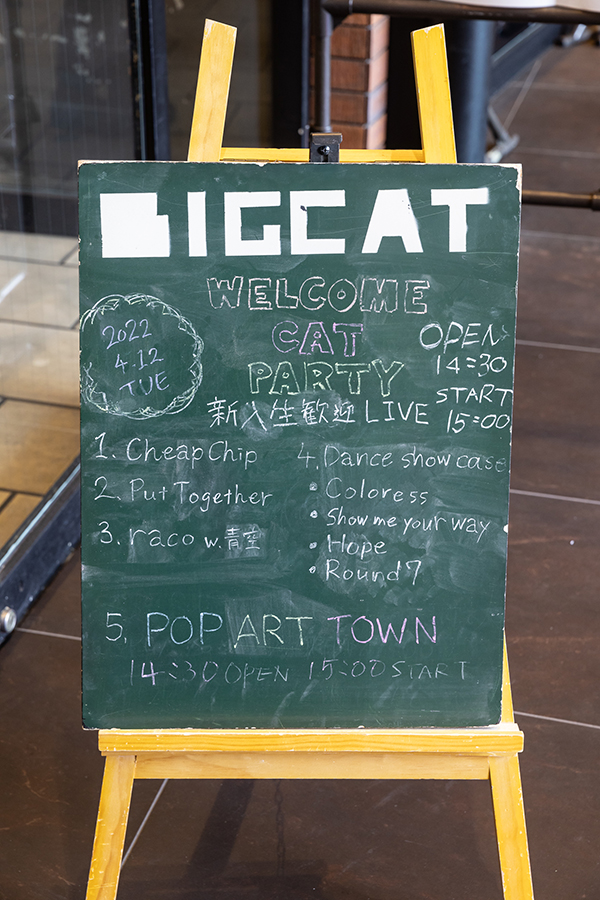 BIGCAT
WELCOME
CAT
PARTY
新入生歓迎 LIVE
2022
4.12
TUE
OPEN
14:30
START
15:00
1. Cheap Chip
2. Put Together
3. raco w. 青空
4. Dance show case
• Coloress
• Show me your way
• Hope
• Round 7
5. POP ART TOWN
14:30 OPEN 15:00 START